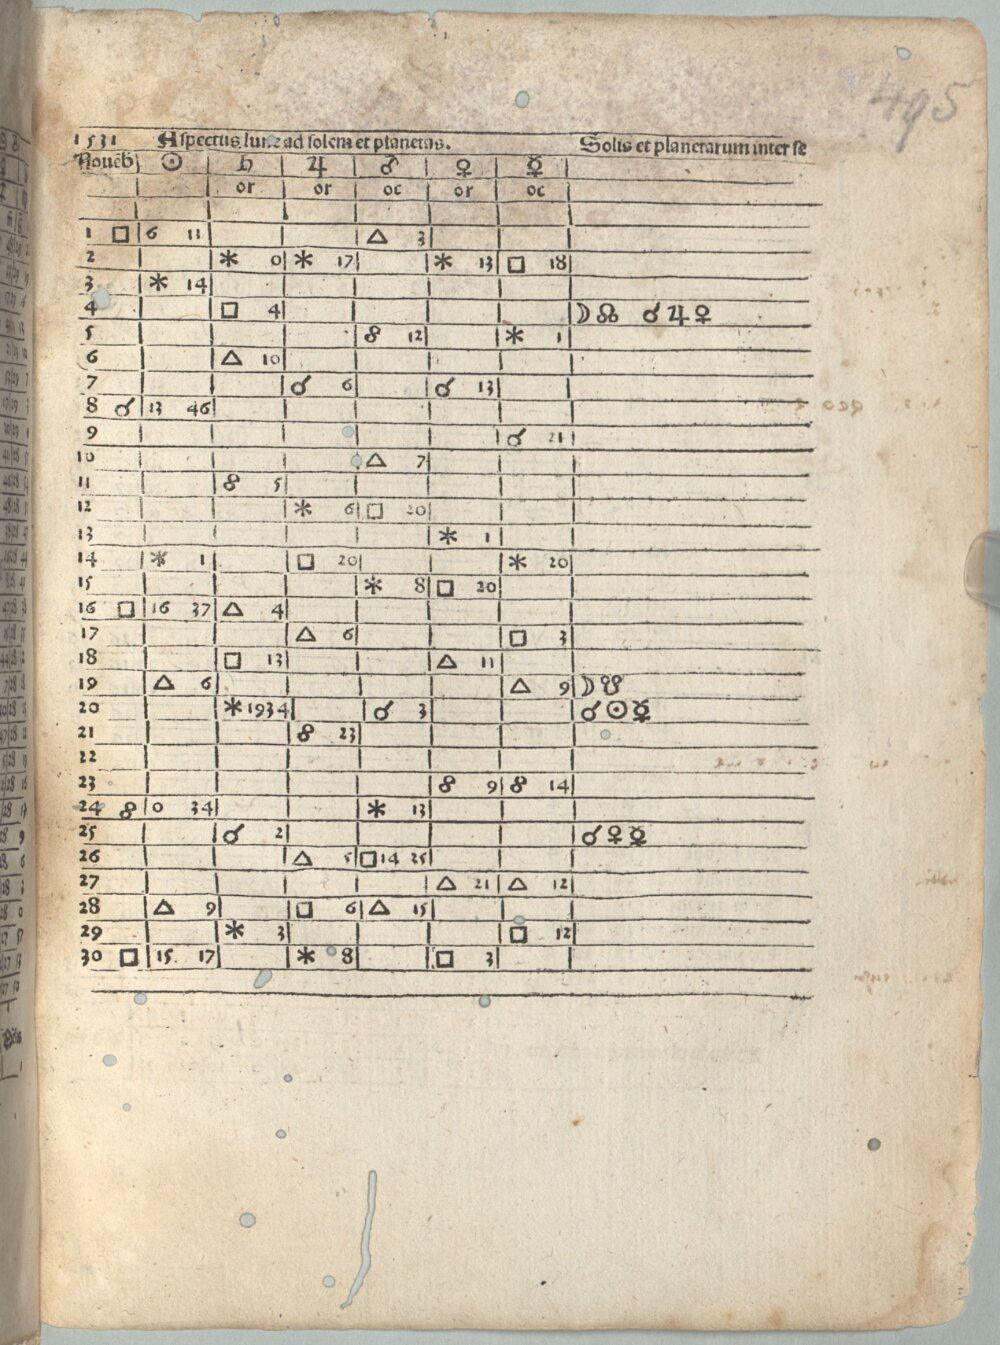 495
1531 Aspectus lune ad solem et planetas. Solis et planetarum inter se
Nouēb ☉ ♄ ♃ ♂ ♀ ☿
or or oc or oc
1 □ 6 11 △ 3
2 ⚹ 0 ⚹ 17 ⚹ 13 □ 18
3 ⚹ 14
4 □ 4 ☽ ☊ ☌ ♃ ♀
5 ☍ 12 ⚹ 1
6 △ 10
7 ☌ 6 ☌ 13
8 ☌ 13 46
9 ☌ 21
10 △ 7
11 ☍ 5
12 ⚹ 6 □ 20
13 ⚹ 1
14 ⚹ 1 □ 20 ⚹ 20
15 ⚹ 8 □ 20
16 □ 16 37 △ 4
17 △ 6 □ 3
18 □ 13 △ 11
19 △ 6 △ 9 ☽ ☋
20 ⚹ 19 34 ☌ 3 ☌ ☉ ☿
21 ☍ 23
22
23 ☍ 9 ☍ 14
24 ☍ 0 34 ⚹ 13
25 ☌ 2 ☌ ♀ ☿
26 △ 5 □ 14 25
27 △ 21 △ 12
28 △ 9 □ 6 △ 15
29 ⚹ 3 □ 12
30 □ 15 17 ⚹ 8 □ 3